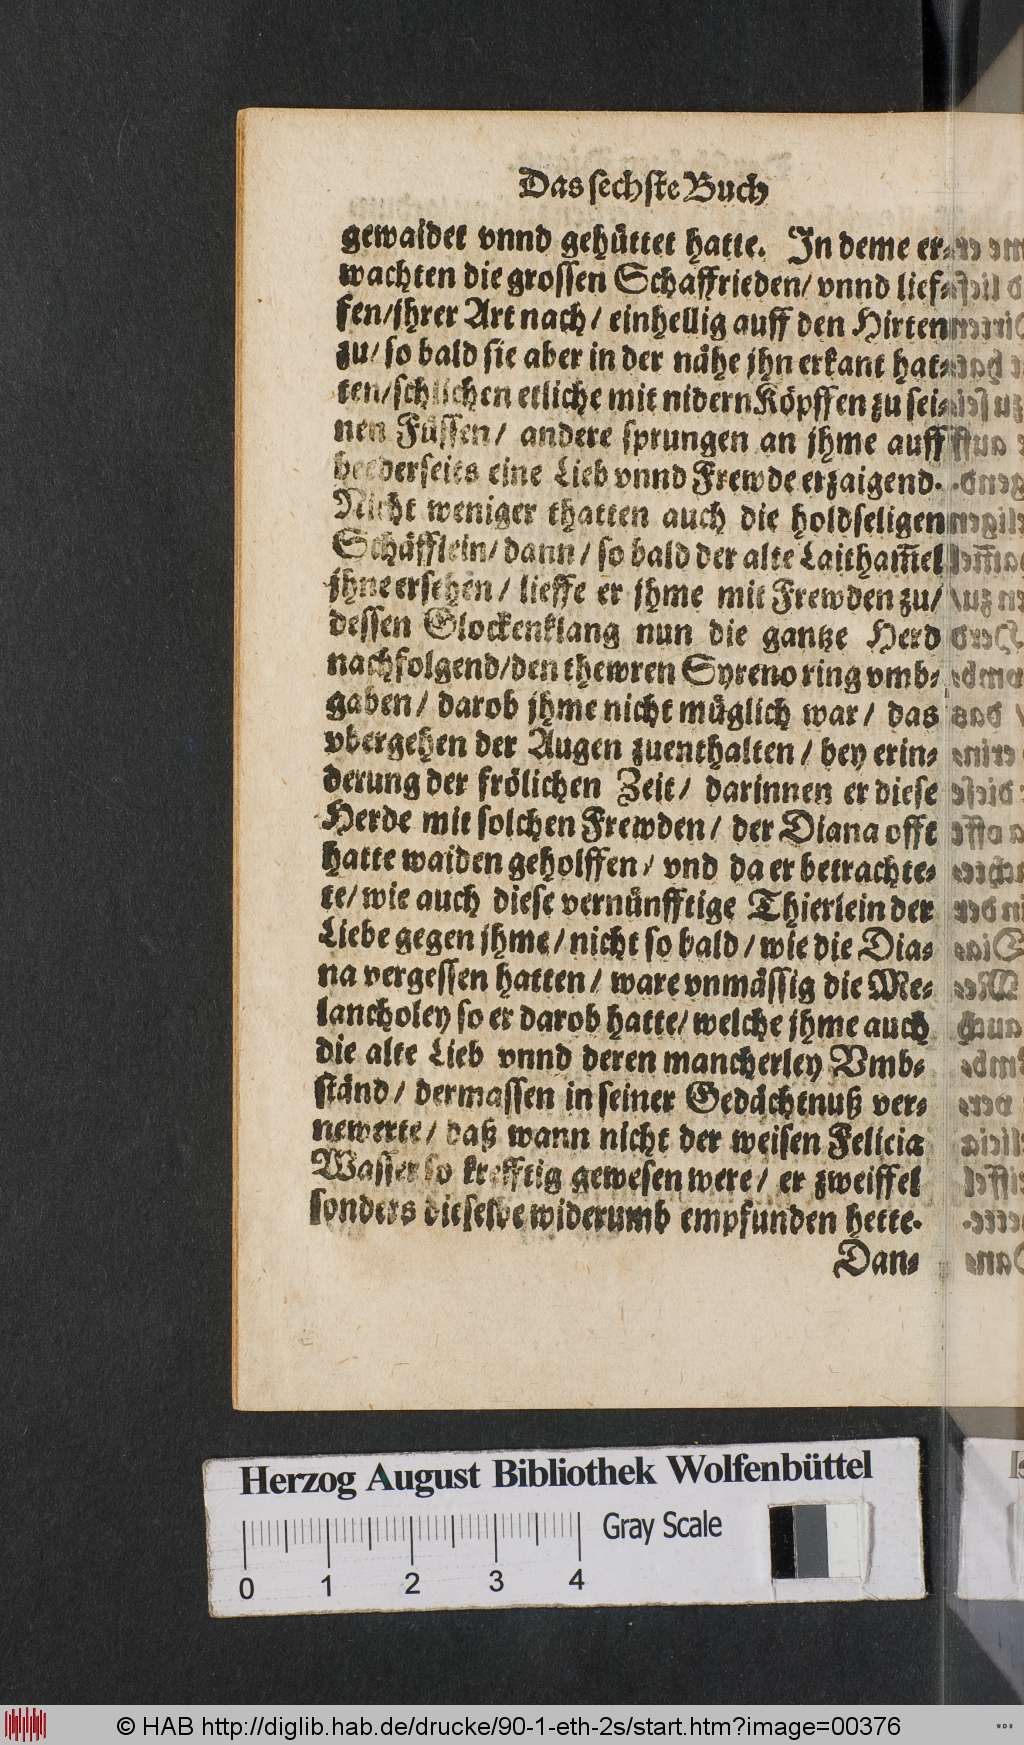 Das sechste Buch
gewaidet vnnd gehüttet hatte. In deme er-
wachten die grossen Schaffrieden/ vnnd lief-
fen/jhrer Art nach/ einhellig auff den Hirten
zu/ so bald sie aber in der nähe jhn erkant hat-
ten/schlichen etliche mit nidern Köpffen zu sei-
nen Füssen/ andere sprungen an jhme auff
beederseits eine Lieb vnnd Frewde erzaigend.
Nicht weniger thatten auch die holdseligen
Schäfflein/ dann/ so bald der alte Laitham̃el
jhne ersehen/ lieffe er jhme mit Frewden zu/
dessen Glockenklang nun die gantze Herd
nachfolgend/den thewren Syreno ring vmb-
gaben/ darob jhme nicht müglich war/ das
vbergehen der Augen zuenthalten/ bey erin-
derung der frölichen Zeit/ darinnen er diese
Herde mit solchen Frewden/ der Diana offt
hatte waiden geholffen/ vnd da er betrachte-
te/ wie auch diese vernünfftige Thierlein der
Liebe gegen jhme/ nicht so bald/ wie die Dia-
na vergessen hatten/ ware vnmässig die Me-
lancholey so er darob hatte/ welche jhme auch
die alte Lieb vnnd deren mancherley Vmb-
ständ/ dermassen in seiner Gedächtnuß ver-
newerte/ daß wann nicht der weisen Felicia
Wasser so krefftig gewesen were/ er zweiffel
sonders dieselbe widerumb empfunden hette.
Dan-
Herzog August Bibliothek Wolfenbüttel
Gray Scale
0 1 2 3 4
© HAB http://diglib.hab.de/drucke/90-1-eth-2s/start.htm?image=00376